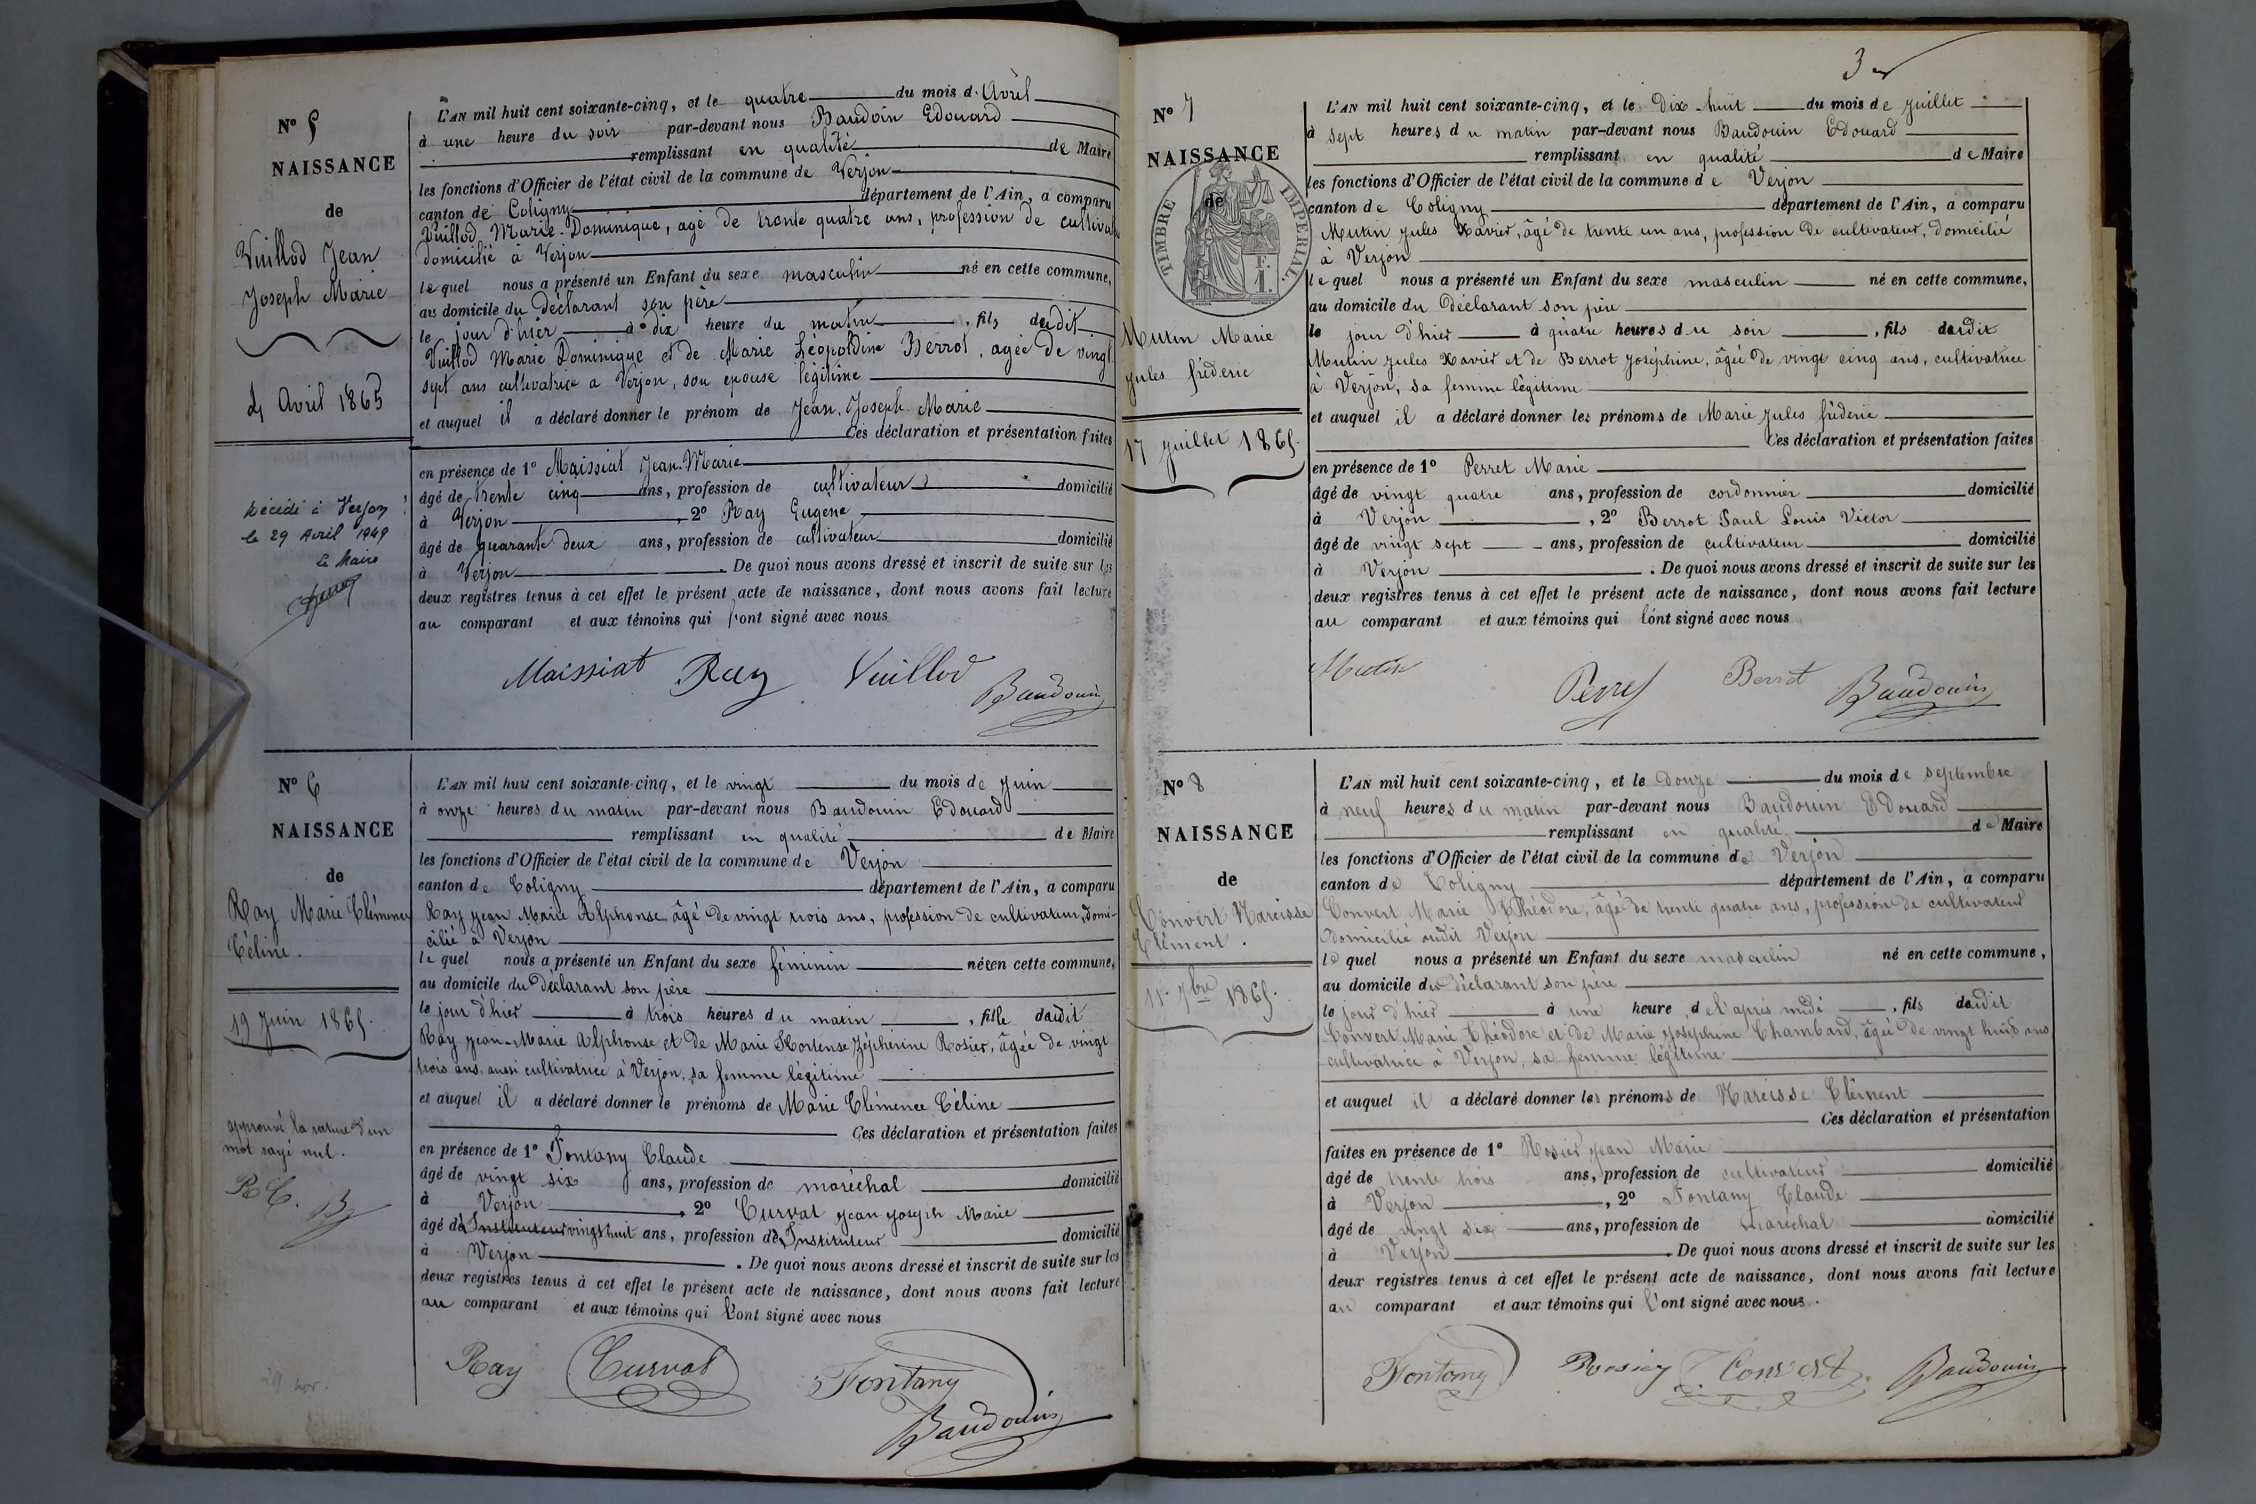 N° 5
NAISSANCE
de
Vuillod Jean
Joseph Marie
4 Avril 1865
Décédé à Verjon
le 29 Avril 1949
Le Maire
L'AN mil huit cent soixante-cinq, et le quatre du mois d'Avril
à une heure du soir par-devant nous Baudoin Edouard
remplissant en qualité de Maire
les fonctions d'Officier de l'état civil de la commune de Verjon
canton de Coligny département de l'Ain, a comparu
Vuillod Marie-Dominique, agé de trente quatre ans, profession de cultivateur
domicilié à Verjon
lequel nous a présenté un Enfant du sexe masculin né en cette commune,
au domicile du déclarant son père
le jour d'hier à dix heure du matin, fils dudit
Vuillod Marie Dominique et de Marie Léopoldine Berrot, agée de vingt
sept ans cultivatrice a Verjon, son épouse légitime
et auquel il a déclaré donner le prénom de Jean. Joseph. Marie
Ces déclaration et présentation faites
en présence de 1° Maissiat Jean-Marie
âgé de trente cinq ans, profession de cultivateur domicilié
à Verjon, 2° Ray Eugène
âgé de quarante deux ans, profession de cultivateur domicilié
à Verjon. De quoi nous avons dressé et inscrit de suite sur les
deux registres tenus à cet effet le présent acte de naissance, dont nous avons fait lecture
au comparant et aux témoins qui l'ont signé avec nous
Maissiat Ray Vuillod Baudouin
N° 6
NAISSANCE
de
Ray Marie Clémence
Céline.
19 Juin 1865.
approuvé la rature d'un
mot rayé nul.
R C. B
L'AN mil huit cent soixante-cinq, et le vingt du mois de Juin
à onze heures du matin par-devant nous Baudouin Edouard
remplissant en qualité de Maire
les fonctions d'Officier de l'état civil de la commune de Verjon
canton de Coligny département de l'Ain, a comparu
Ray Jean Marie Alphonse âgé de vingt trois ans, profession de cultivateur, domi-
cilié à Verjon
lequel nous a présenté un Enfant du sexe féminin née en cette commune,
au domicile du déclarant son père
le jour d'hier à trois heures du matin, fille dudit
Ray Jean-Marie Alphonse et de Marie Hortense Zéphérine Rosier, âgée de vingt
trois ans, aussi cultivatrice à Verjon, sa femme légitime
et auquel il a déclaré donner le prénoms de Marie Clémence Céline
Ces déclaration et présentation faites
en présence de 1° Fontany Claude
âgé de vingt six ans, profession de maréchal domicilié
à Verjon, 2° Curval Jean Joseph Marie
âgé de Instituteur vingt huit ans, profession d'Instituteur domicilié
à Verjon. De quoi nous avons dressé et inscrit de suite sur les
deux registres tenus à cet effet le présent acte de naissance, dont nous avons fait lecture
au comparant et aux témoins qui l'ont signé avec nous
Ray Curval Fontany
Baudouin
3
N° 7
NAISSANCE
de
TIMBRE IMPERIAL.
Mutin Marie
Jules fréderic
17 Juillet 1865.
L'AN mil huit cent soixante-cinq, et le Dix-huit du mois de Juillet
à sept heures du matin par-devant nous Baudouin Edouard
remplissant en qualité de Maire
les fonctions d'Officier de l'état civil de la commune de Verjon
canton de Coligny département de l'Ain, a comparu
Mutin Jules Xavier, âgé de trente un ans, profession de cultivateur, domicilié
à Verjon
lequel nous a présenté un Enfant du sexe masculin né en cette commune,
au domicile du Déclarant son père
le jour d'hier à quatre heures du soir, fils dudit
Mutin Jules Xavier et de Berrot Joséphine, âgée de vingt cinq ans, cultivatrice
à Verjon, sa femme légitime
et auquel il a déclaré donner les prénoms de Marie Jules fréderic
Ces déclaration et présentation faites
en présence de 1° Perret Marie
âgé de vingt quatre ans, profession de cordonnier domicilié
à Verjon, 2° Berrot Paul Louis Victor
âgé de vingt sept ans, profession de cultivateur domicilié
à Verjon. De quoi nous avons dressé et inscrit de suite sur les
deux registres tenus à cet effet le présent acte de naissance, dont nous avons fait lecture
au comparant et aux témoins qui l'ont signé avec nous
Mutin Perret Berrot Baudouin
N° 8
NAISSANCE
de
Convert Narcisse
Clément.
11 7bre 1865.
L'AN mil huit cent soixante-cinq, et le Douze du mois de septembre
à neuf heures du matin par-devant nous Baudouin Edouard
remplissant en qualité de Maire
les fonctions d'Officier de l'état civil de la commune de Verjon
canton de Coligny département de l'Ain, a comparu
Convert Marie Théodore, âgé de trente quatre ans, profession de cultivateur
Domicilié audit Verjon
lequel nous a présenté un Enfant du sexe masculin né en cette commune,
au domicile du déclarant son père
le jour d'hier à une heure de l'après midi, fils dudit
Convert Marie Théodore et de Marie Josephine Chambard, âgée de vingt huit ans
cultivatrice à Verjon, sa femme légitime
et auquel il a déclaré donner les prénoms de Narcisse Clément
Ces déclaration et présentation
faites en présence de 1° Rosier Jean Marie
âgé de trente trois ans, profession de cultivateur domicilié
à Verjon, 2° Fontany Claude
âgé de vingt six ans, profession de maréchal domicilié
à Verjon. De quoi nous avons dressé et inscrit de suite sur les
deux registres tenus à cet effet le présent acte de naissance, dont nous avons fait lecture
au comparant et aux témoins qui l'ont signé avec nous.
Fontany Rosier Convert Baudouin